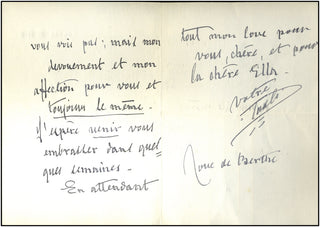 vous vois pas; mais mon
devouement et mon
affection pour vous et
toujours le même.
J'espère venir vous
embrasser dans quel
ques semaines.
En attendant
tout mon love pour
vous, chère, et pour
la chère Ella.
votre